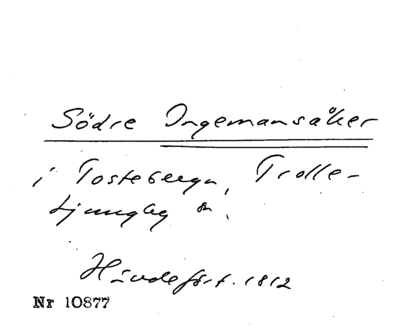 Södre Ingemansåker
i Tosteberga, Trolle-
Ljungby sn.
Händeförf. 1812
Nr 10877